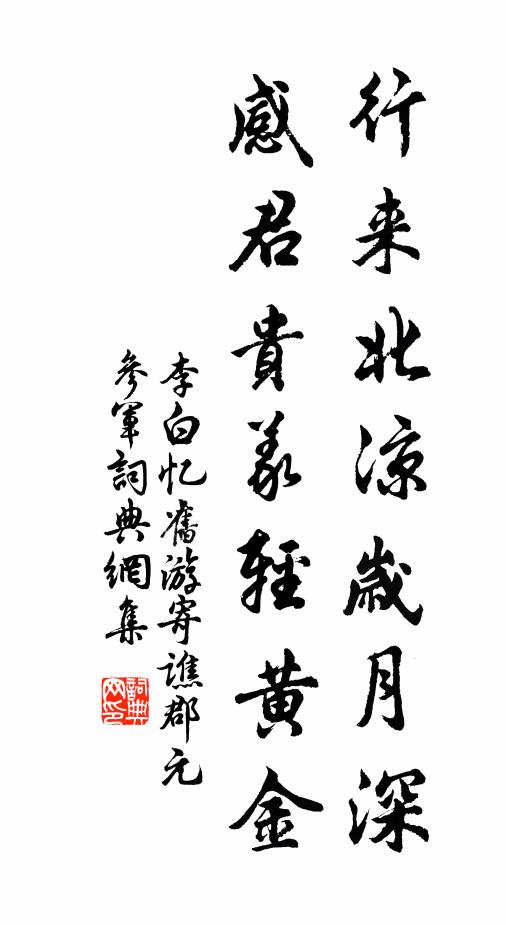 行来北涼歲月深
感君貴義輕黃金
李白忆舊游寄譙郡元
參軍詞典網集
詞典
网印